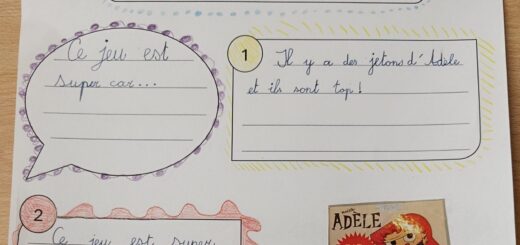 Ce jeu est
super car...
1
Il y a des jetons d'Adèle
et ils sont top !
2
Ce jeu est super
ADÈLE